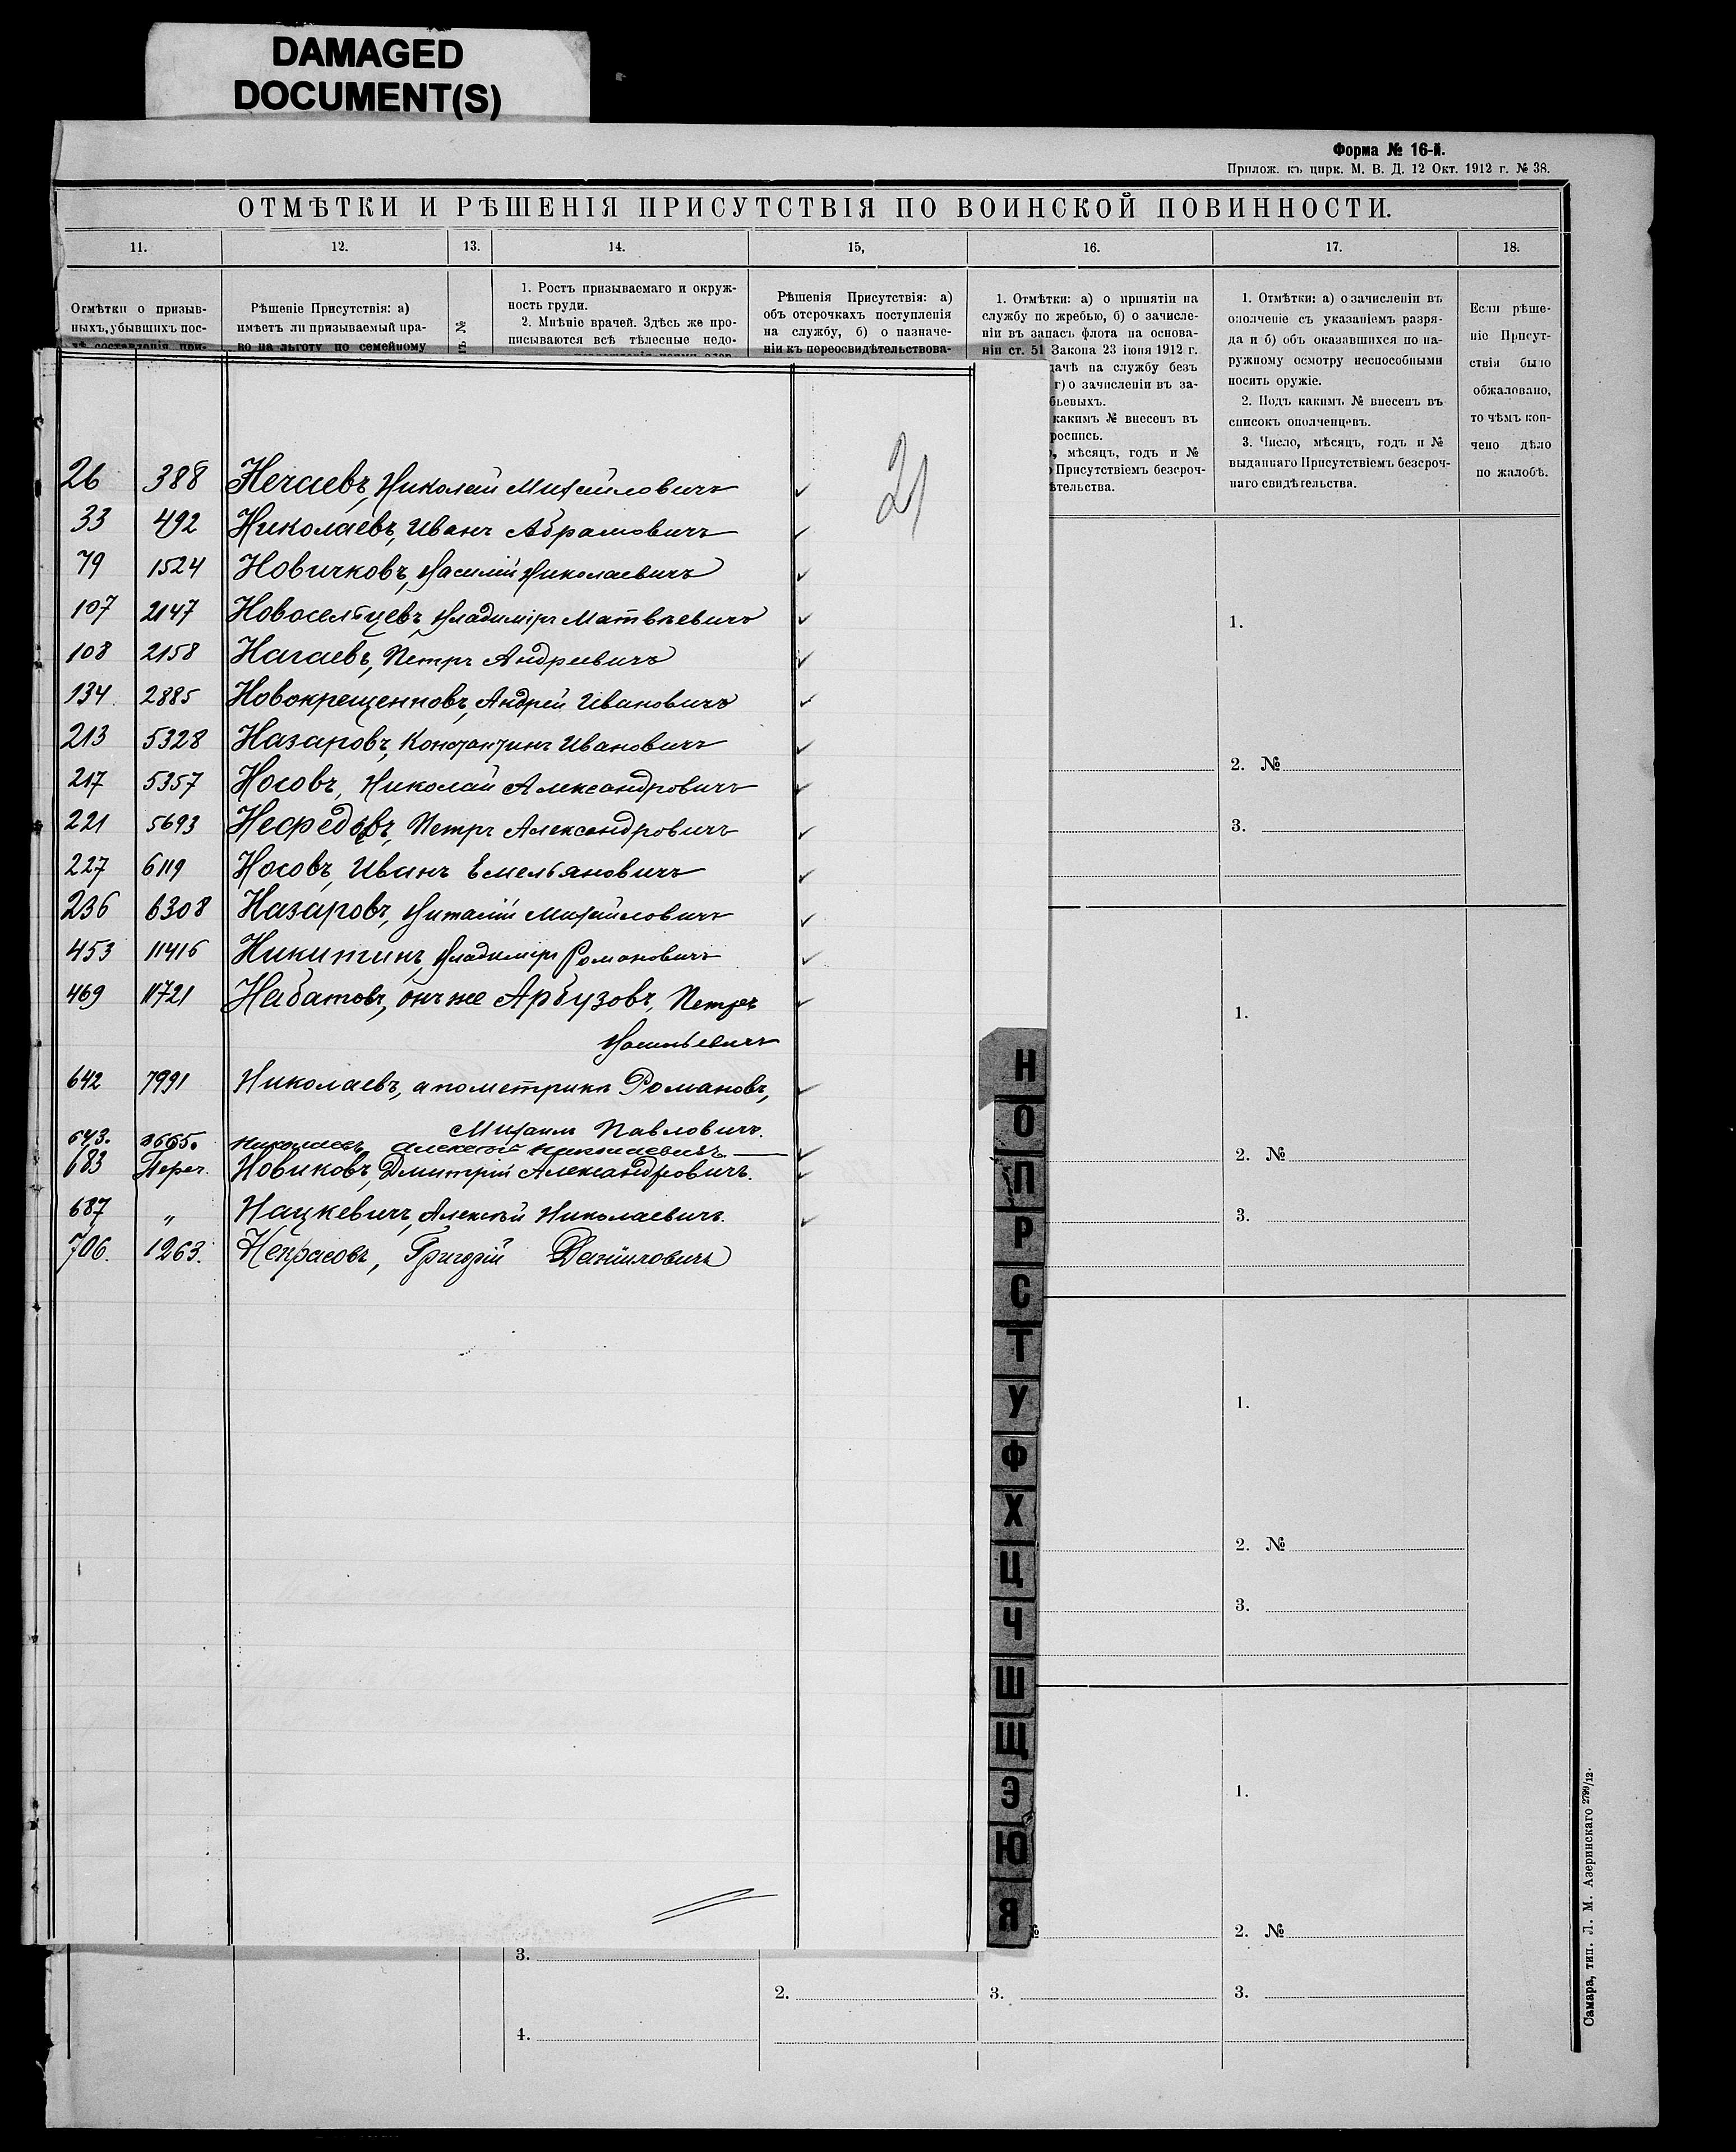 DAMAGED
DOCUMENT(S)
Форма № 16-й.
Прилож. къ цирк. М. В. Д. 12 Окт. 1912 г. № 38.
ОТМѢТКИ И РѢШЕНІЯ ПРИСУТСТВІЯ ПО ВОИНСКОЙ ПОВИННОСТИ.
11. 12. 13. 14. 15, 16. 17. 18.
Отмѣтки о призыв-
ныхъ, убывшихъ пос-
лѣ составленія при-
Рѣшеніе Присутствія: а)
имѣетъ ли призываемый пра-
во на льготу по семейному
№
1. Ростъ призываемаго и окруж-
ность груди.
2. Мнѣніе врачей. Здѣсь же про-
писываются всѣ тѣлесные недо-
Рѣшенія Присутствія: а)
объ отсрочкахъ поступленія
на службу, б) о назначе-
ніи къ переосвидѣтельствова-
1. Отмѣтки: а) о принятіи на
службу по жребью, б) о зачисле-
ніи въ запасъ флота на основа-
ніи ст. 51 Закона 23 іюня 1912 г.
дачѣ на службу безъ
г) о зачисленіи въ за-
бьевыхъ.
какимъ № внесенъ въ
роспись.
, мѣсяцъ, годъ и №
Присутствіемъ безсроч-
ѣтельства.
1. Отмѣтки: а) о зачисленіи въ
ополченіе съ указаніемъ разря-
да и б) объ оказавшихся по на-
ружному осмотру неспособными
носить оружіе.
2. Подъ какимъ № внесенъ въ
списокъ ополченцевъ.
3. Число, мѣсяцъ, годъ и №
выданнаго Присутствіемъ безсроч-
наго свидѣтельства.
Если рѣше-
ніе Присут-
ствія было
обжаловано,
то чѣмъ кон-
чено дѣло
по жалобѣ.
21
26 388 Нечаевъ, Николай Михайловичъ
33 492 Николаевъ, Иванъ Абрамовичъ
79 1524 Новичковъ, Василій Николаевичъ
107 2147 Новосельцевъ Владиміръ Матвѣевичъ
108 2158 Нагаевъ, Петръ Андреевичъ
134. 2885 Новокрещенновъ, Андрей Ивановичъ
213 5328 Назаровъ, Константинъ Ивановичъ
217 5357 Носовъ, Николай Александровичъ
221 5693 Нефедовъ, Петръ Александровичъ
227 6119 Носовъ, Иванъ Емельяновичъ
236 6308 Назаровъ, Виталій Михайловичъ
453 11416 Никитинъ, Владиміръ Романовичъ
469 11721 Набатовъ, онъ же Арбузовъ, Петръ
Васильевичъ
642 7991 Николаевъ, а по метрикѣ Романовъ,
Михаилъ Павловичъ.
643. Николаевъ, Алексѣй Николаевичъ.
683 Переч. Новиковъ, Дмитрій Александровичъ.
687 " Нацкевичъ, Алексѣй Николаевичъ.
706. 1263. Некрасовъ, Григорій Даніиловичъ
Н
О
П
Р
С
Т
У
Ф
Х
Ц
Ч
Ш
Щ
Э
Ю
Я
1.
2. №
3.
1.
2. №
3.
1.
2. №
3.
1.
№
2. №
3.
2.
3.
3.
4.
Самара, тип. Л. М. Азеринскаго 2799/12.